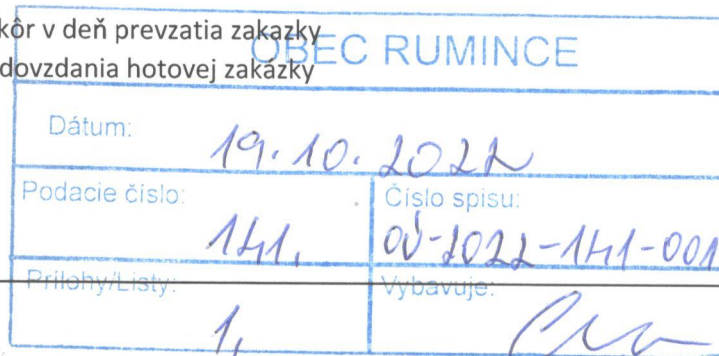 kôr v deň prevzatia zakazky
dovzdania hotovej zakázky
OBEC RUMINCE
Dátum:
19.10.2022
Podacie číslo:
141.
Číslo spisu:
OÚ-2022-141-001
Prílohy/Listy:
1,
Vybavuje: